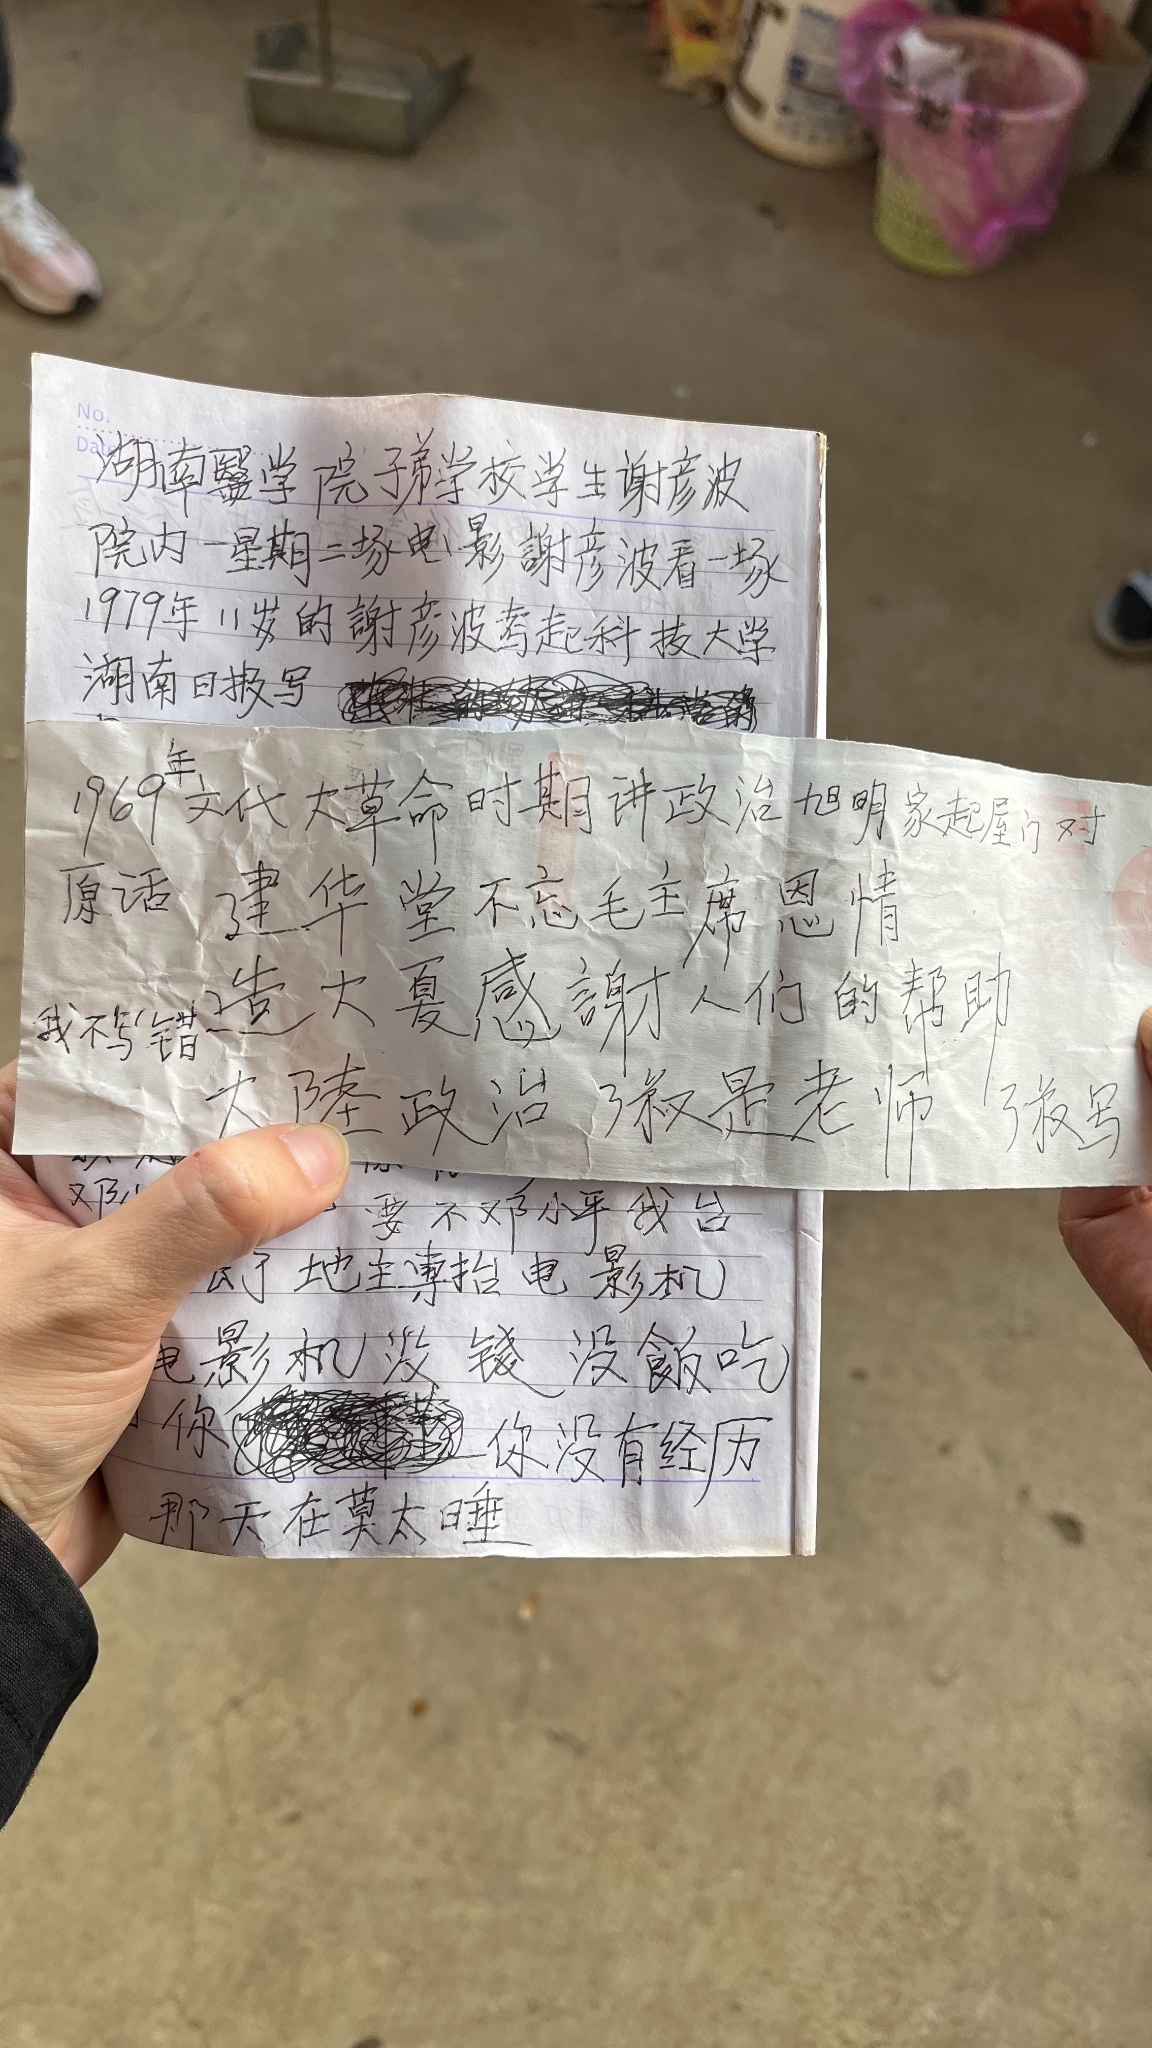 No.
Date
湖南醫学院子弟学校学生谢彦波
院内一星期二场电影謝彦波看一场
1979年11岁的謝彦波考起科技大学
湖南日报写
1969年文代大革命时期讲政治旭明家起屋门对
原话 建华堂不忘毛主席恩情
我不写错 造大夏感謝人们的帮助
大陸政治 张是老师 张写
邓小 要不邓小平我台
地主專抬电影机
电影机没钱没飯吃
你 你没有经历
那天在莫太睡